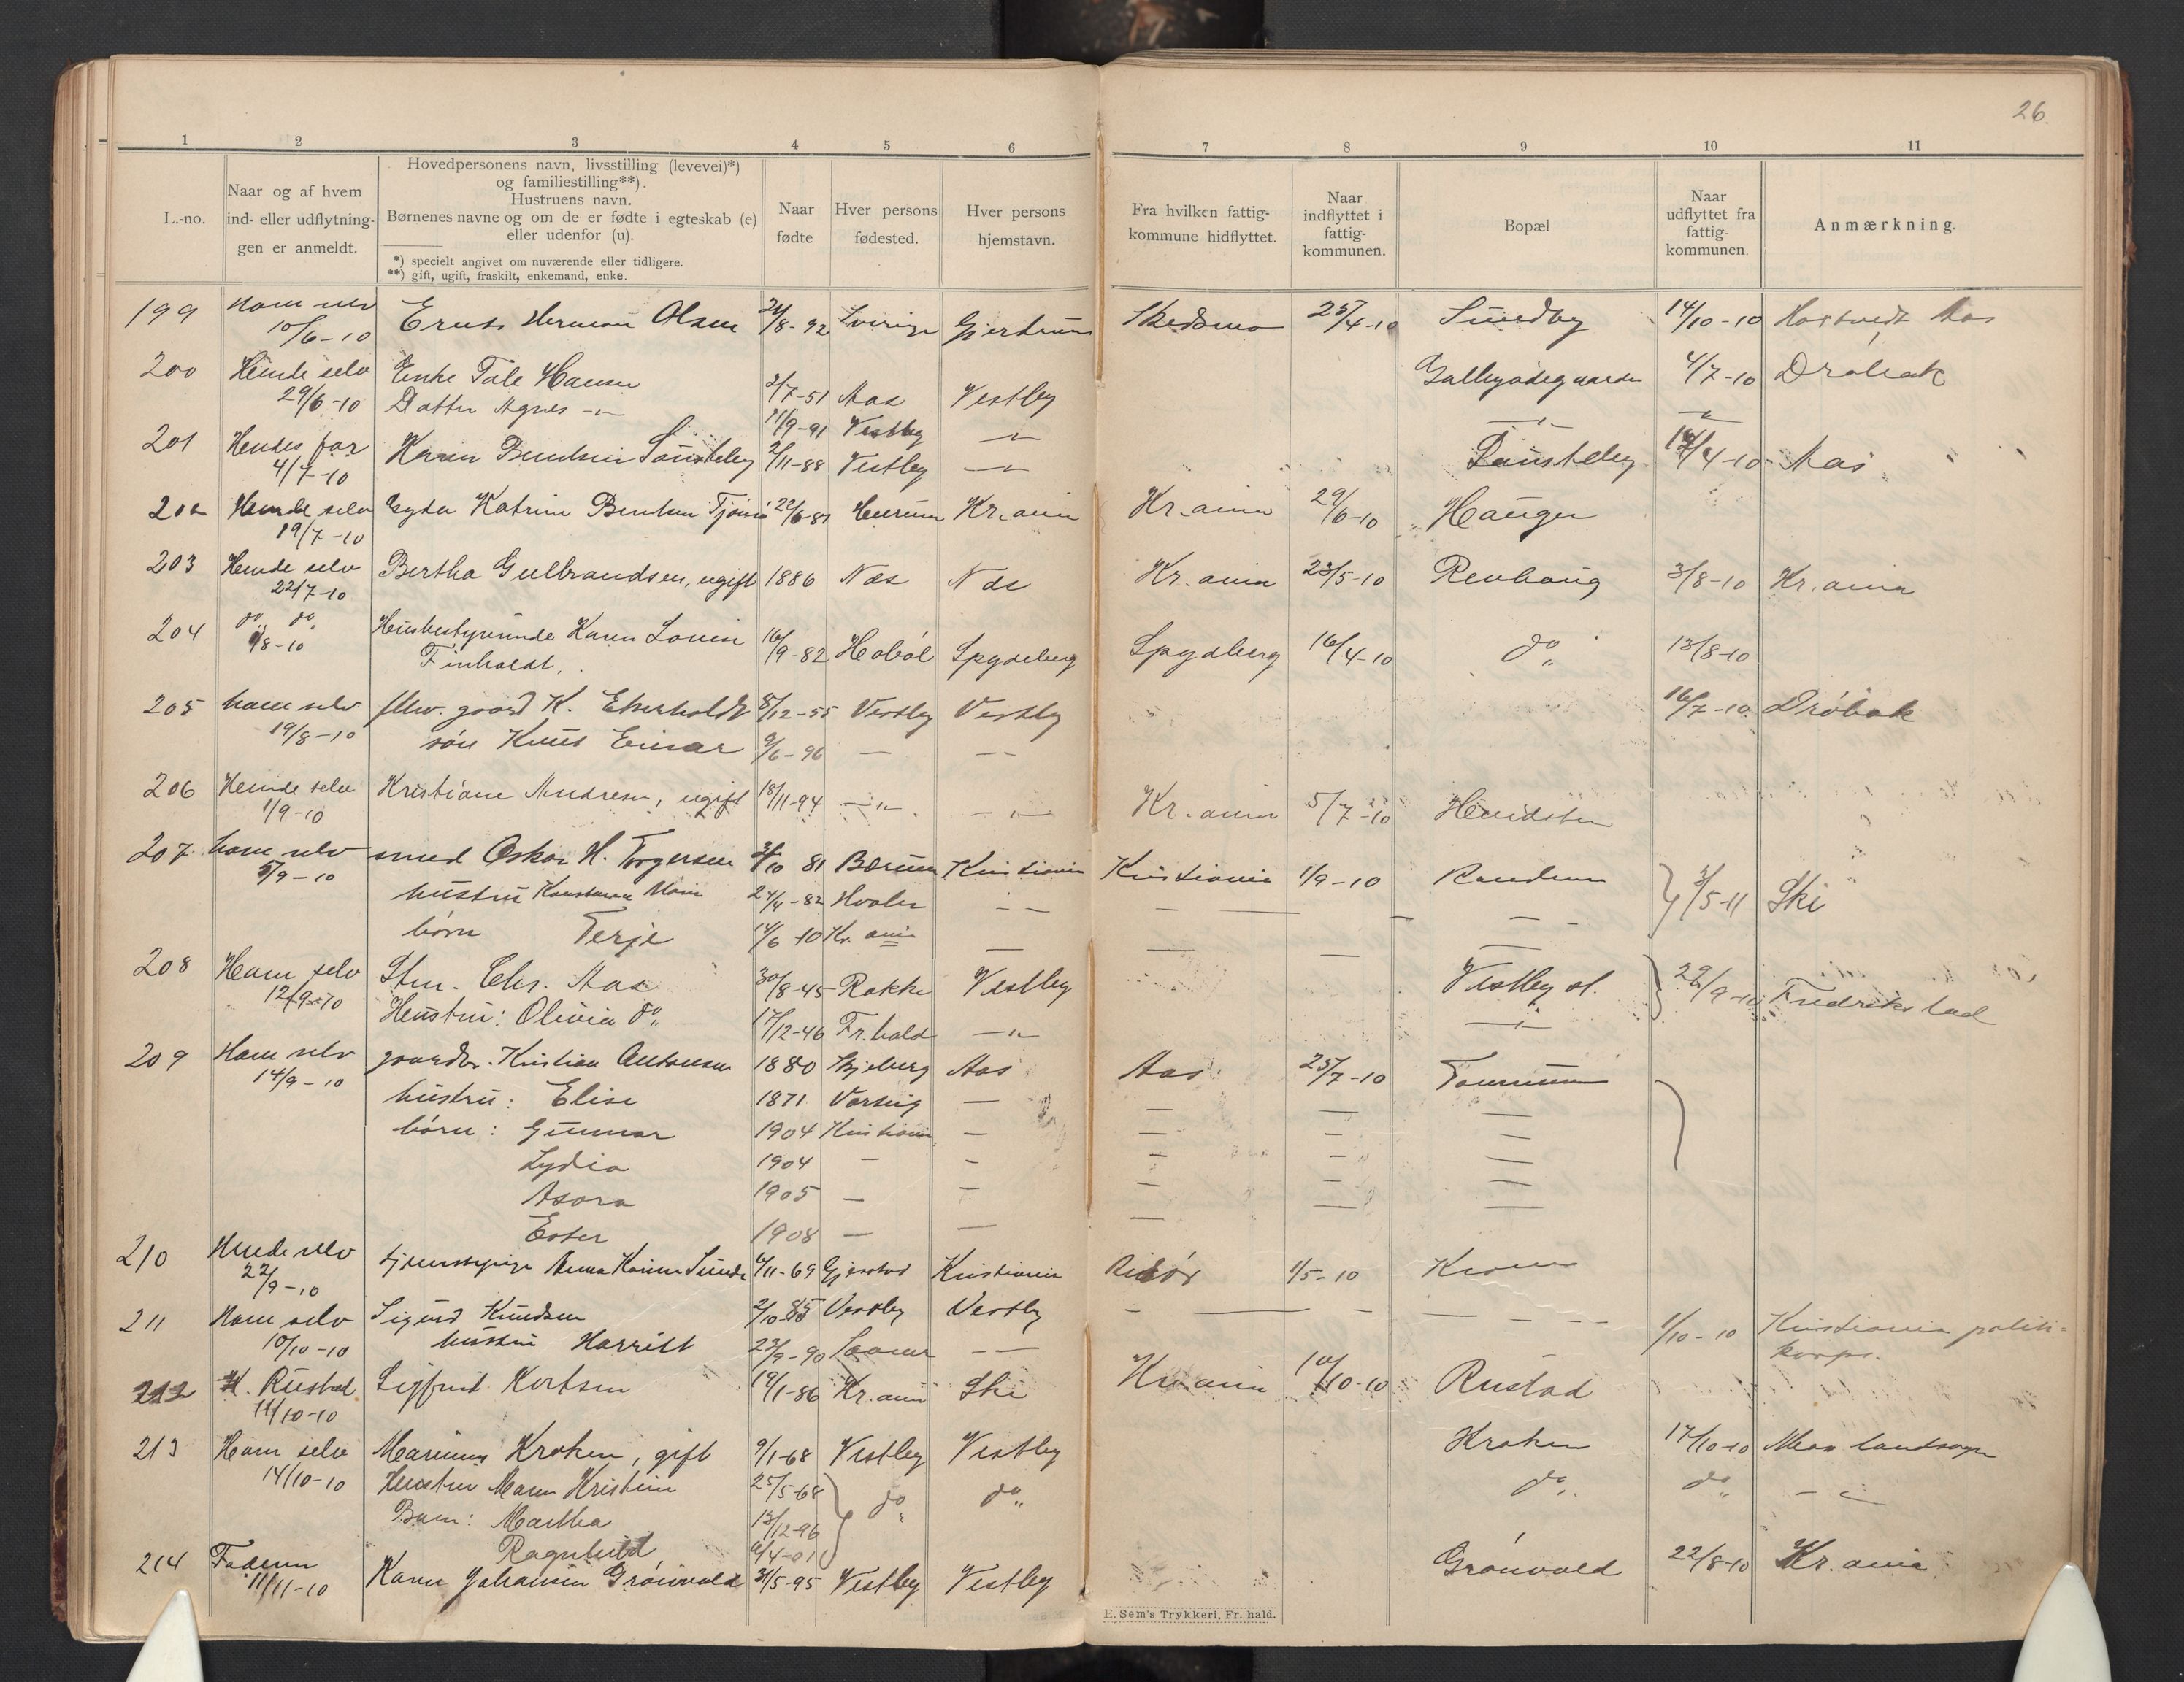 26.
1 2 3 4 5 6 7 8 9 10 11
L.-no.
Naar og af hvem
ind- eller udflytnin-
gen er anmeldt.
Hovedpersonens navn, livsstilling (levevei)*)
og familiestilling**).
Hustruens navn.
Børnenes navne og om de er fødte i egteskab (e)
eller udenfor (u).
*) specielt angivet om nuværende eller tidligere.
**) gift, ugift, fraskilt, enkemand, enke.
Naar
fødte
Hver persons
fødested.
Hver persons
hjemstavn.
Fra hvilken fattig-
kommune hidflyttet.
Naar
indflyttet i
fattig-
kommunen.
Bopæl
Naar
udflyttet fra
fattig-
kommunen.
Anmærkning.
199 Ham selv Herman Olsen /8-92 Sverige Gjerdrum Skedsmo 25/4-10 Sundby 14/10-10 Aas
10/6-10
200 Hende selv Enke Tale Hansen 2/7-51 Aas Vestby 4/7-10 Drøbak
29/6-10 Datter Agnes -"- 11/9-91 Vestby -"- -"- -"-
201 Hendes far Karen 2/11-88 Vestby -"- /4-10 Aas
4/7-10
202 Hende selv Gyda Katrine Bentsen 22/6-87 Hurum Kr.ania Kr.ania 29/6-10 Haugen
19/7-10
203 Hende selv Bertha Gulbrandsen, ugift 1886 Næs Næs Kr.ania 23/5-10 Revhaug 3/8-10 Kr.ania
22/7-10
204 do do Husbestyrerinde Karen Lovise 16/9-82 Hobøl Spydeberg Spydberg 16/4-10 do 13/8-10
/8-10 Finholdt.
205 ham selv gaard K. Eherholdt 8/12-55 Vestby Vestby 16/7-10 Drøbak
19/8-10 søn Einar 9/6-96 — — —
206 Hende selv Kristiane Andresen, ugift 18/11-94 -"- -"- Kr.ania 5/7-10
1/9-10
207 ham selv smed Oskar H. Torgersen /10 81 Bærum Kristiania Kristiania 1/9-10 3/5-11 Ski
5/9-10 hustru 24/4-82 Hvaler — — — — — —
børn Terje 14/6-10 Kr. ania — — — —
208 Ham selv Stm. Chr. Aas 30/8-45 Rakke Vestby Vestby st. 22/9-10 Fredrikstad
12/9-10 Hustru: Olivia do 17/12-46 Fr.hald -"- -"-
209 Ham selv gaardbr. Kristian Antonsen 1880 Skjeberg Aas Aas 25/7-10
14/9-10 hustru: Elise 1871 Varteig — — — —
børn: Gunnar 1904 Kristiania — — — —
Lydia 1904 — — — — —
Asora 1905 — — — — —
Ester 1908 — — —
210 Hende selv tjenestepige Anna Karine Sunde /11-69 Gjerstad Kristiania Risør 1/5-10
22/9-10
211 Ham selv Sigurd Knudsen 2/10-85 Vestby Vestby — — — — — — 1/10-10 Kristiania politi-
10/10-10 hustru Harriet 23/9-90 — — korps.
212 H. Rustad Sigfrid 19/1-86 Kr.ania Ski Kr.ania 10/10-10 Rustad
11/10-10
213 Ham selv Marinus Kroken, gift 9/1-68 Vestby Vestby Kroken 17/10-10 Moss landsogn
14/10-10 Hustru Maren Kristine 25/5-68 do do do do -"-
Barn: Martha 13/12-96
Ragnhild /4-01
214 Faderen Karen Johansen Grønvold 31/5-95 Vestby Vestby Grønvold 22/8-10 Kr.ania
11/11-10
E. Sem's Trykkeri, Fr. hald.